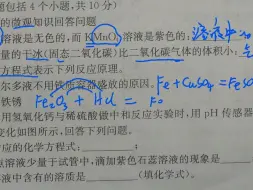 题包括4个小题,共10分)
的微观知识回答问题
溶液是无色的,而KMnO₄溶液是紫色的,溶液中
量的干冰(固态二氧化碳)比二氧化碳气体的体积小:
方程式表示下列反应原理。
尔多液不用铁质容器盛放的原因。Fe+CuSO₄=FeSO
铁锈 Fe₂O₃ + HCl =
用氢氧化钙与稀硫酸做中和反应实验时,用pH传感器
变化如图所示,回答下列问题。
应的化学方程式:
溶液少量于试管中,滴加紫色石蕊溶液的现象是
溶液中含有的溶质是(填化学式)。